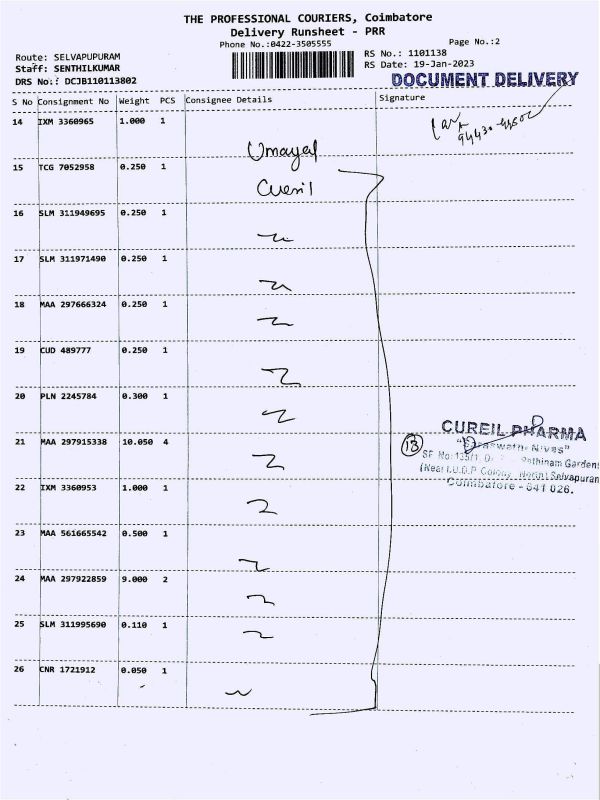 THE PROFESSIONAL COURIERS, Coimbatore
Delivery Runsheet - PRR
Phone No.:0422-3505555
Page No.:2
Route: SELVAPUPURAM
Staff: SENTHILKUMAR
DRS No.: DCJB110113802
RS No.: 1101138
RS Date: 19-Jan-2023
DOCUMENT DELIVERY
S No Consignment No Weight PCS Consignee Details Signature
14 IXM 3360965 1.000 1
Umayal
15 TCG 7052958 0.250 1
Cureil
16 SLM 311949695 0.250 1
17 SLM 311971490 0.250 1
18 MAA 297666324 0.250 1
19 CUD 489777 0.250 1
20 PLN 2245784 0.300 1
21 MAA 297915338 10.050 4
13
CUREIL PHARMA
SF No:135/1, Rathinam Gardens
(Near I.U.D.P Colony, North) Selvapuram
Coimbatore - 641 026.
22 IXM 3360953 1.000 1
23 MAA 561665542 0.500 1
24 MAA 297922859 9.000 2
25 SLM 311995690 0.110 1
26 CNR 1721912 0.050 1